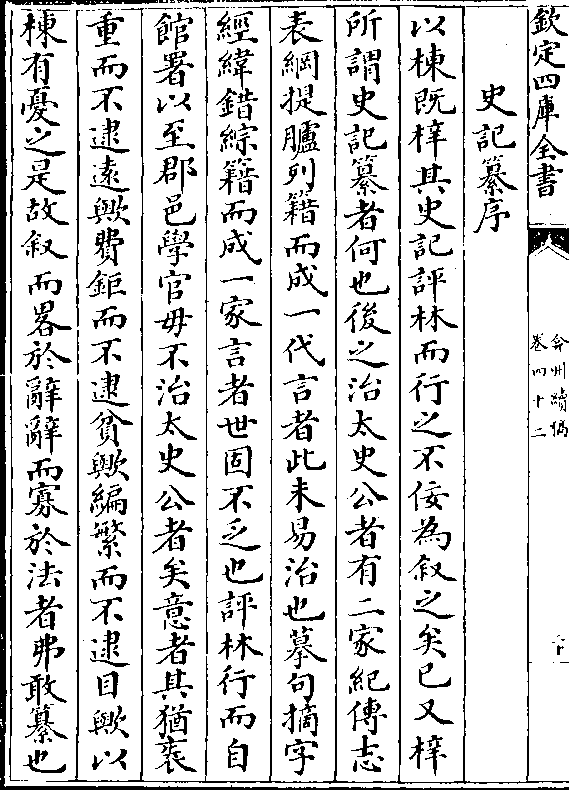 欽定四庫全書
弇州續稿
卷四十二
史記纂序
以棟既梓其史記評林而行之不佞為叙之矣已又梓
所謂史記纂者何也後之治太史公者有二家紀傳志
表綱提臚列籍而成一代言者此未易治也摹句摘字
經緯錯綜籍而成一家言者世固不乏也評林行而自
館署以至郡邑學官毋不治太史公者矣意者其猶裘
重而不逮遠歟費鉅而不逮貧歟編繁而不逮目歟以
棟有憂之是故叙而畧於辭辭而寡於法者弗敢纂也